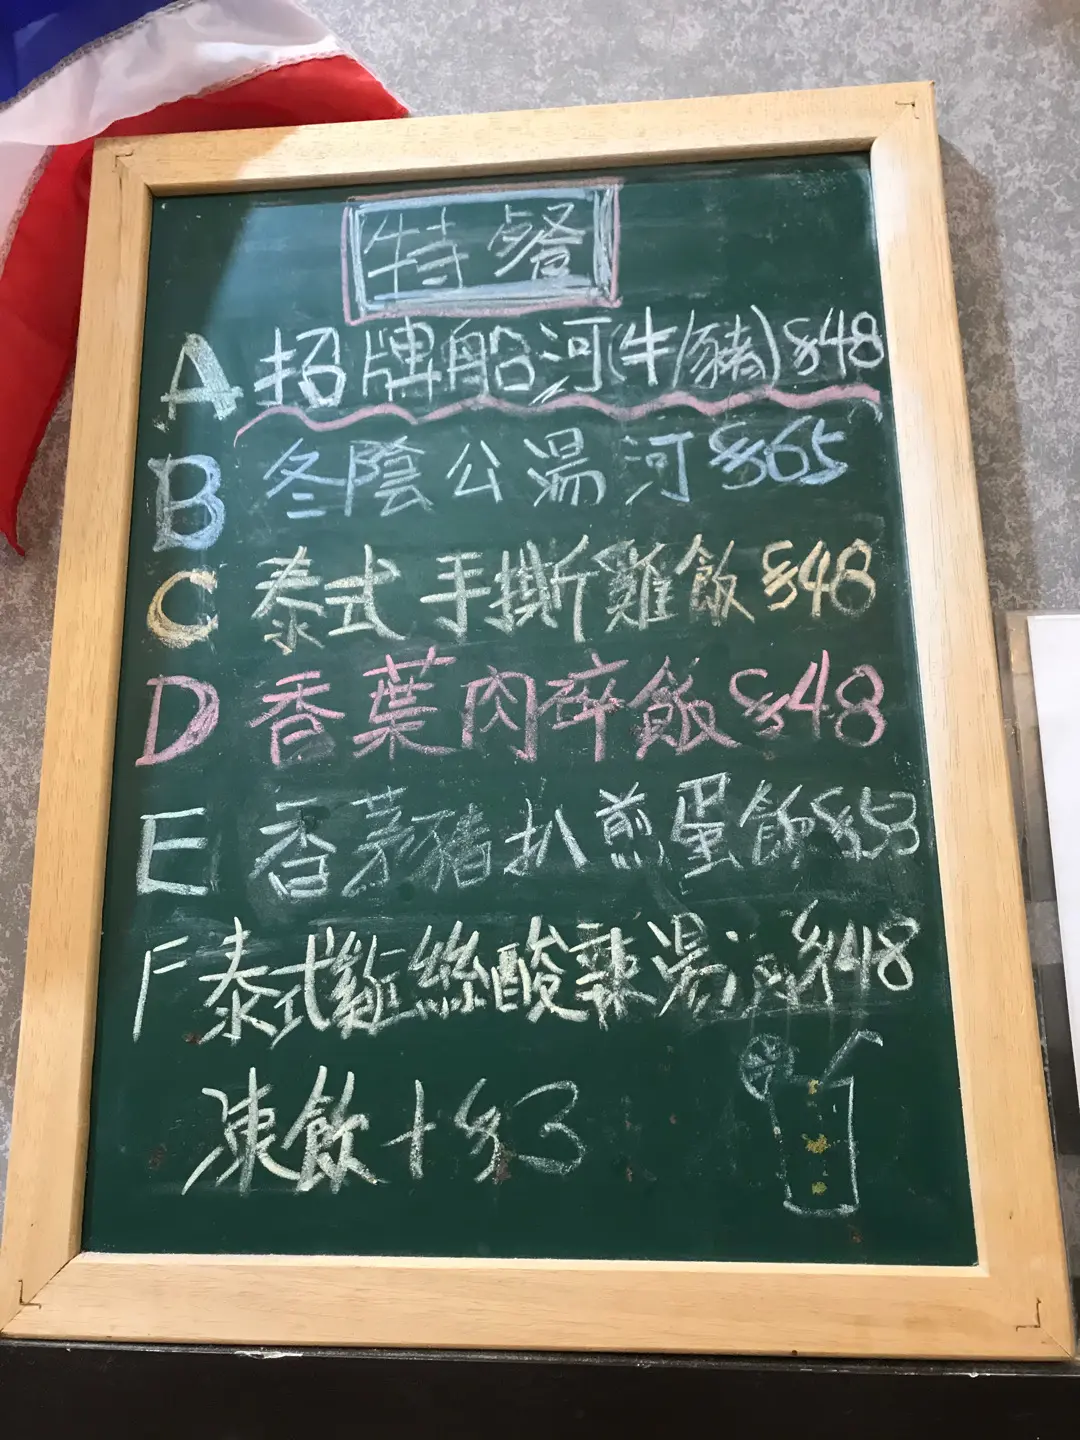 特餐
A 招牌船河(牛/豬) $48
B 冬陰公湯河 $65
C 泰式手撕雞飯 $48
D 香葉肉碎飯 $48
E 香茅豬扒煎蛋飯 $53
F 泰式雞絲酸辣湯河 $48
凍飲+$3